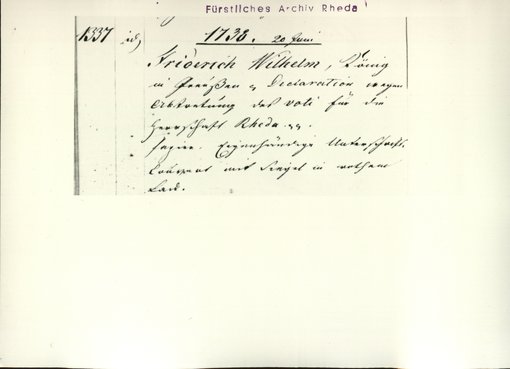 Fürstliches Archiv Rheda
1337 id 1738. 20 Juni
Friderich Wilhelm, König
in Preußen Declaration wegen
Abtretung des voti für die
Herrschaft Rheda
Papier. Eigenhändige Unterschrift.
Couvert mit Siegel in rothem
Lack.